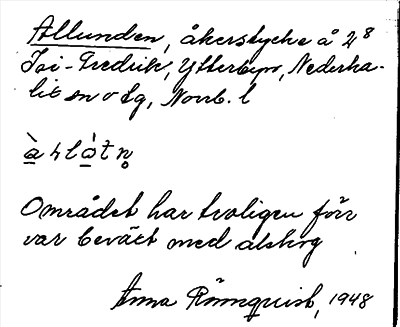 Allunden, åkerstycke å 2⁸
Isi-Fredrik, Ytterbyn, Nederka-
lix sn o tg, Norrb. l
Området har troligen förr
var beväxt med alskog
Anna Rönnquist, 1948